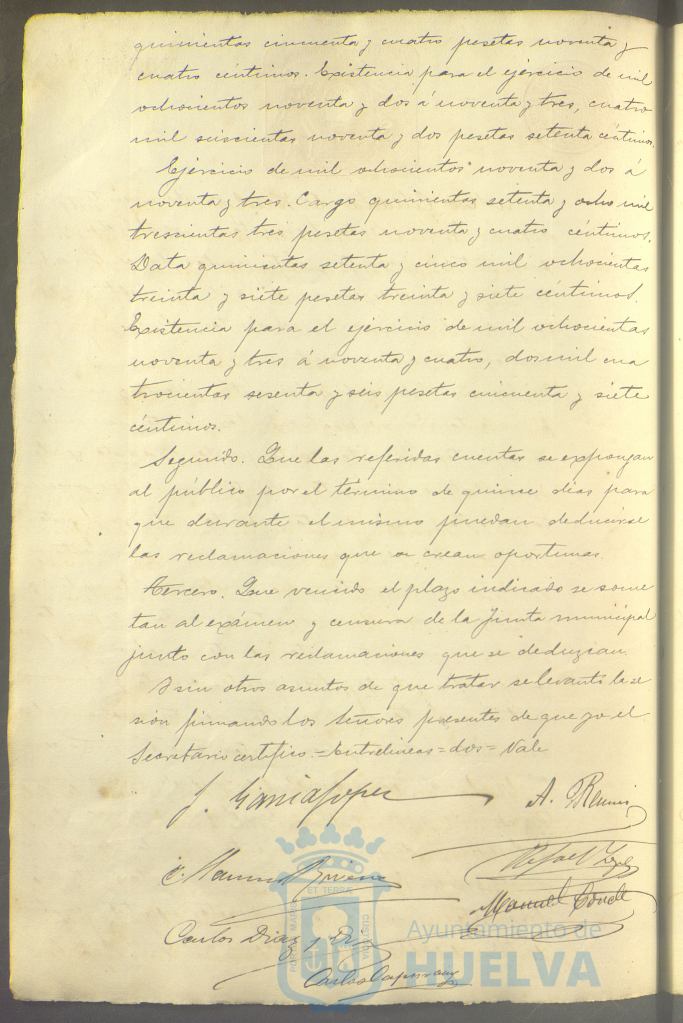 quinientas cincuenta y cuatro pesetas noventa y
cuatro céntimos. Existencia para el ejercicio de mil
ochocientos noventa y dos á noventa y tres, cuatro
mil seiscientas noventa y dos pesetas setenta céntimos.
Ejercicio de mil ochocientos noventa y dos á
noventa y tres. Cargo quinientas setenta y ocho mil
trescientas tres pesetas noventa y cuatro céntimos.
Data quinientas setenta y cinco mil ochocientas
treinta y siete pesetas treinta y siete céntimos.
Existencia para el ejercicio de mil ochocientas
noventa y tres á noventa y cuatro, dos mil cua
trocientas sesenta y seis pesetas cincuenta y siete
céntimos.
Segundo. Que las referidas cuentas se expongan
al público por el término de quince dias para
que durante el mismo puedan deducirse
las reclamaciones que se crean oportunas.
Tercero. Que vencido el plazo indicado se some
tan al exámen y censura de la Junta municipal
junto con las reclamaciones que se deduzcan.
Y sin otros asuntos de que tratar se levantó la se
sión firmando los Señores presentes de que yo el
Secretario certifico.=Entrelineas=dos=Vale
J. García López
A.
Manuel
Rafael
Manuel Conde
Carlos Diaz y
Carlos
ET TERRAE
CUSTODIA
Ayuntamiento de
HUELVA